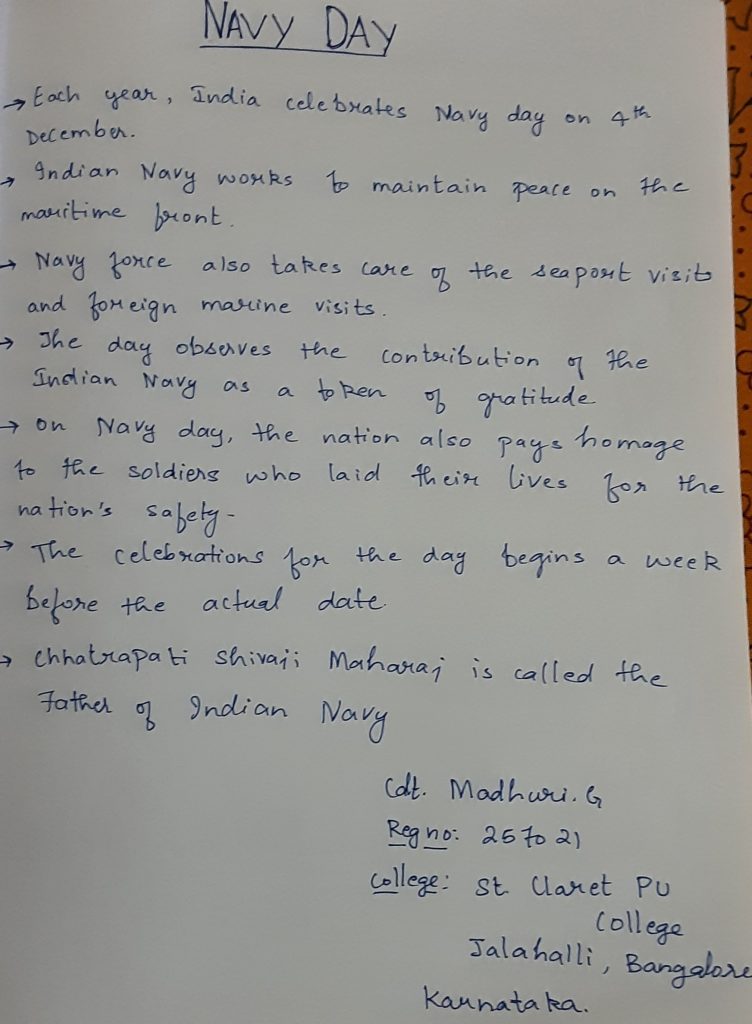 NAVY DAY
→ Each year, India celebrates Navy day on 4th
December.
→ Indian Navy works to maintain peace on the
maritime front.
→ Navy force also takes care of the seaport visits
and foreign marine visits.
→ The day observes the contribution of the
Indian Navy as a token of gratitude
→ on Navy day, the nation also pays homage
to the soldiers who laid their lives for the
nation's safety-
→ The celebrations for the day begins a week
before the actual date.
→ Chhatrapati Shivaji Maharaj is called the
Father of Indian Navy
Cdt. Madhuri. G
Reg no: 257021
College: St. Claret PU
College
Jalahalli, Bangalore
Karnataka.